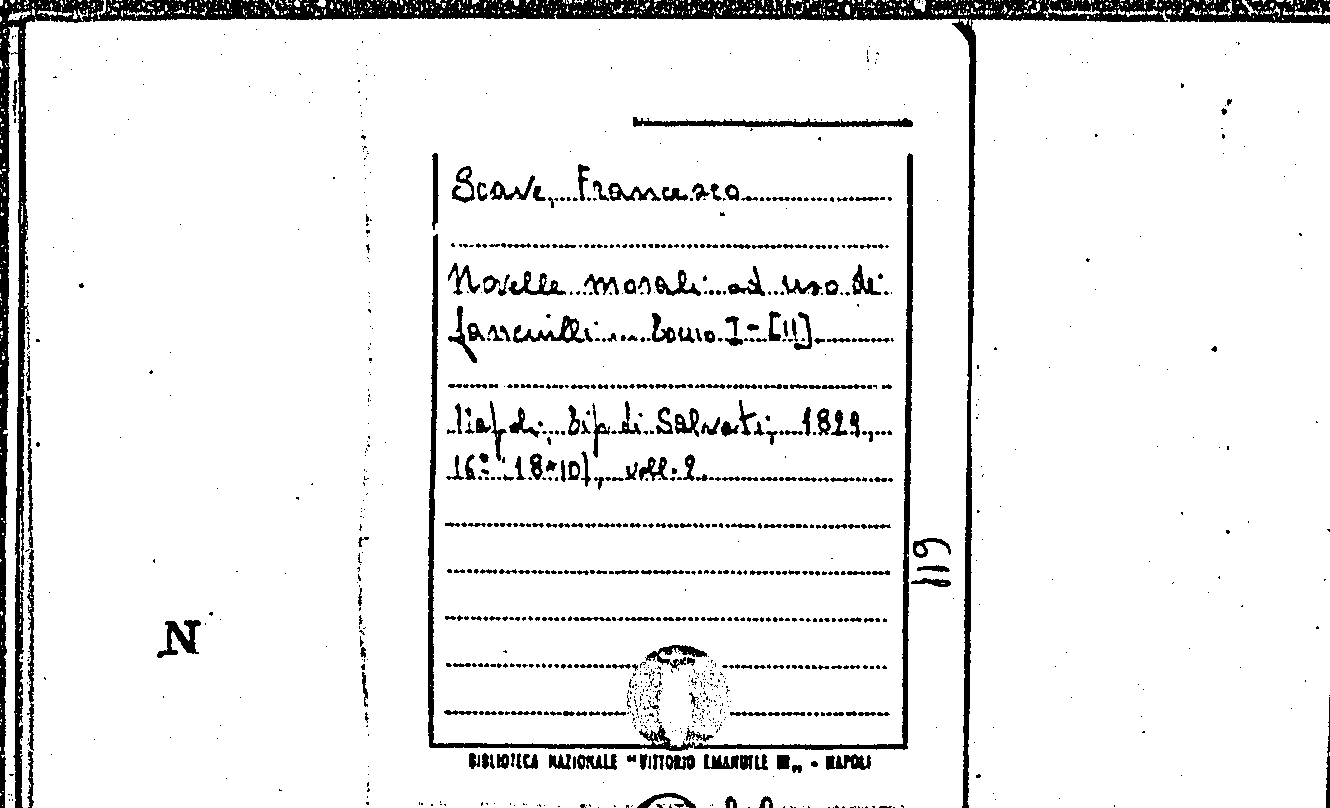 Scave, Francesco
Novelle morali ad uso dei
fanciulli... Tomo I-[II]
Napoli, Tip. di Salvati, 1829,
16° (18*10), voll. 2.
119
N
BIBLIOTECA NAZIONALE "VITTORIO EMANUELE III„ - NAPOLI